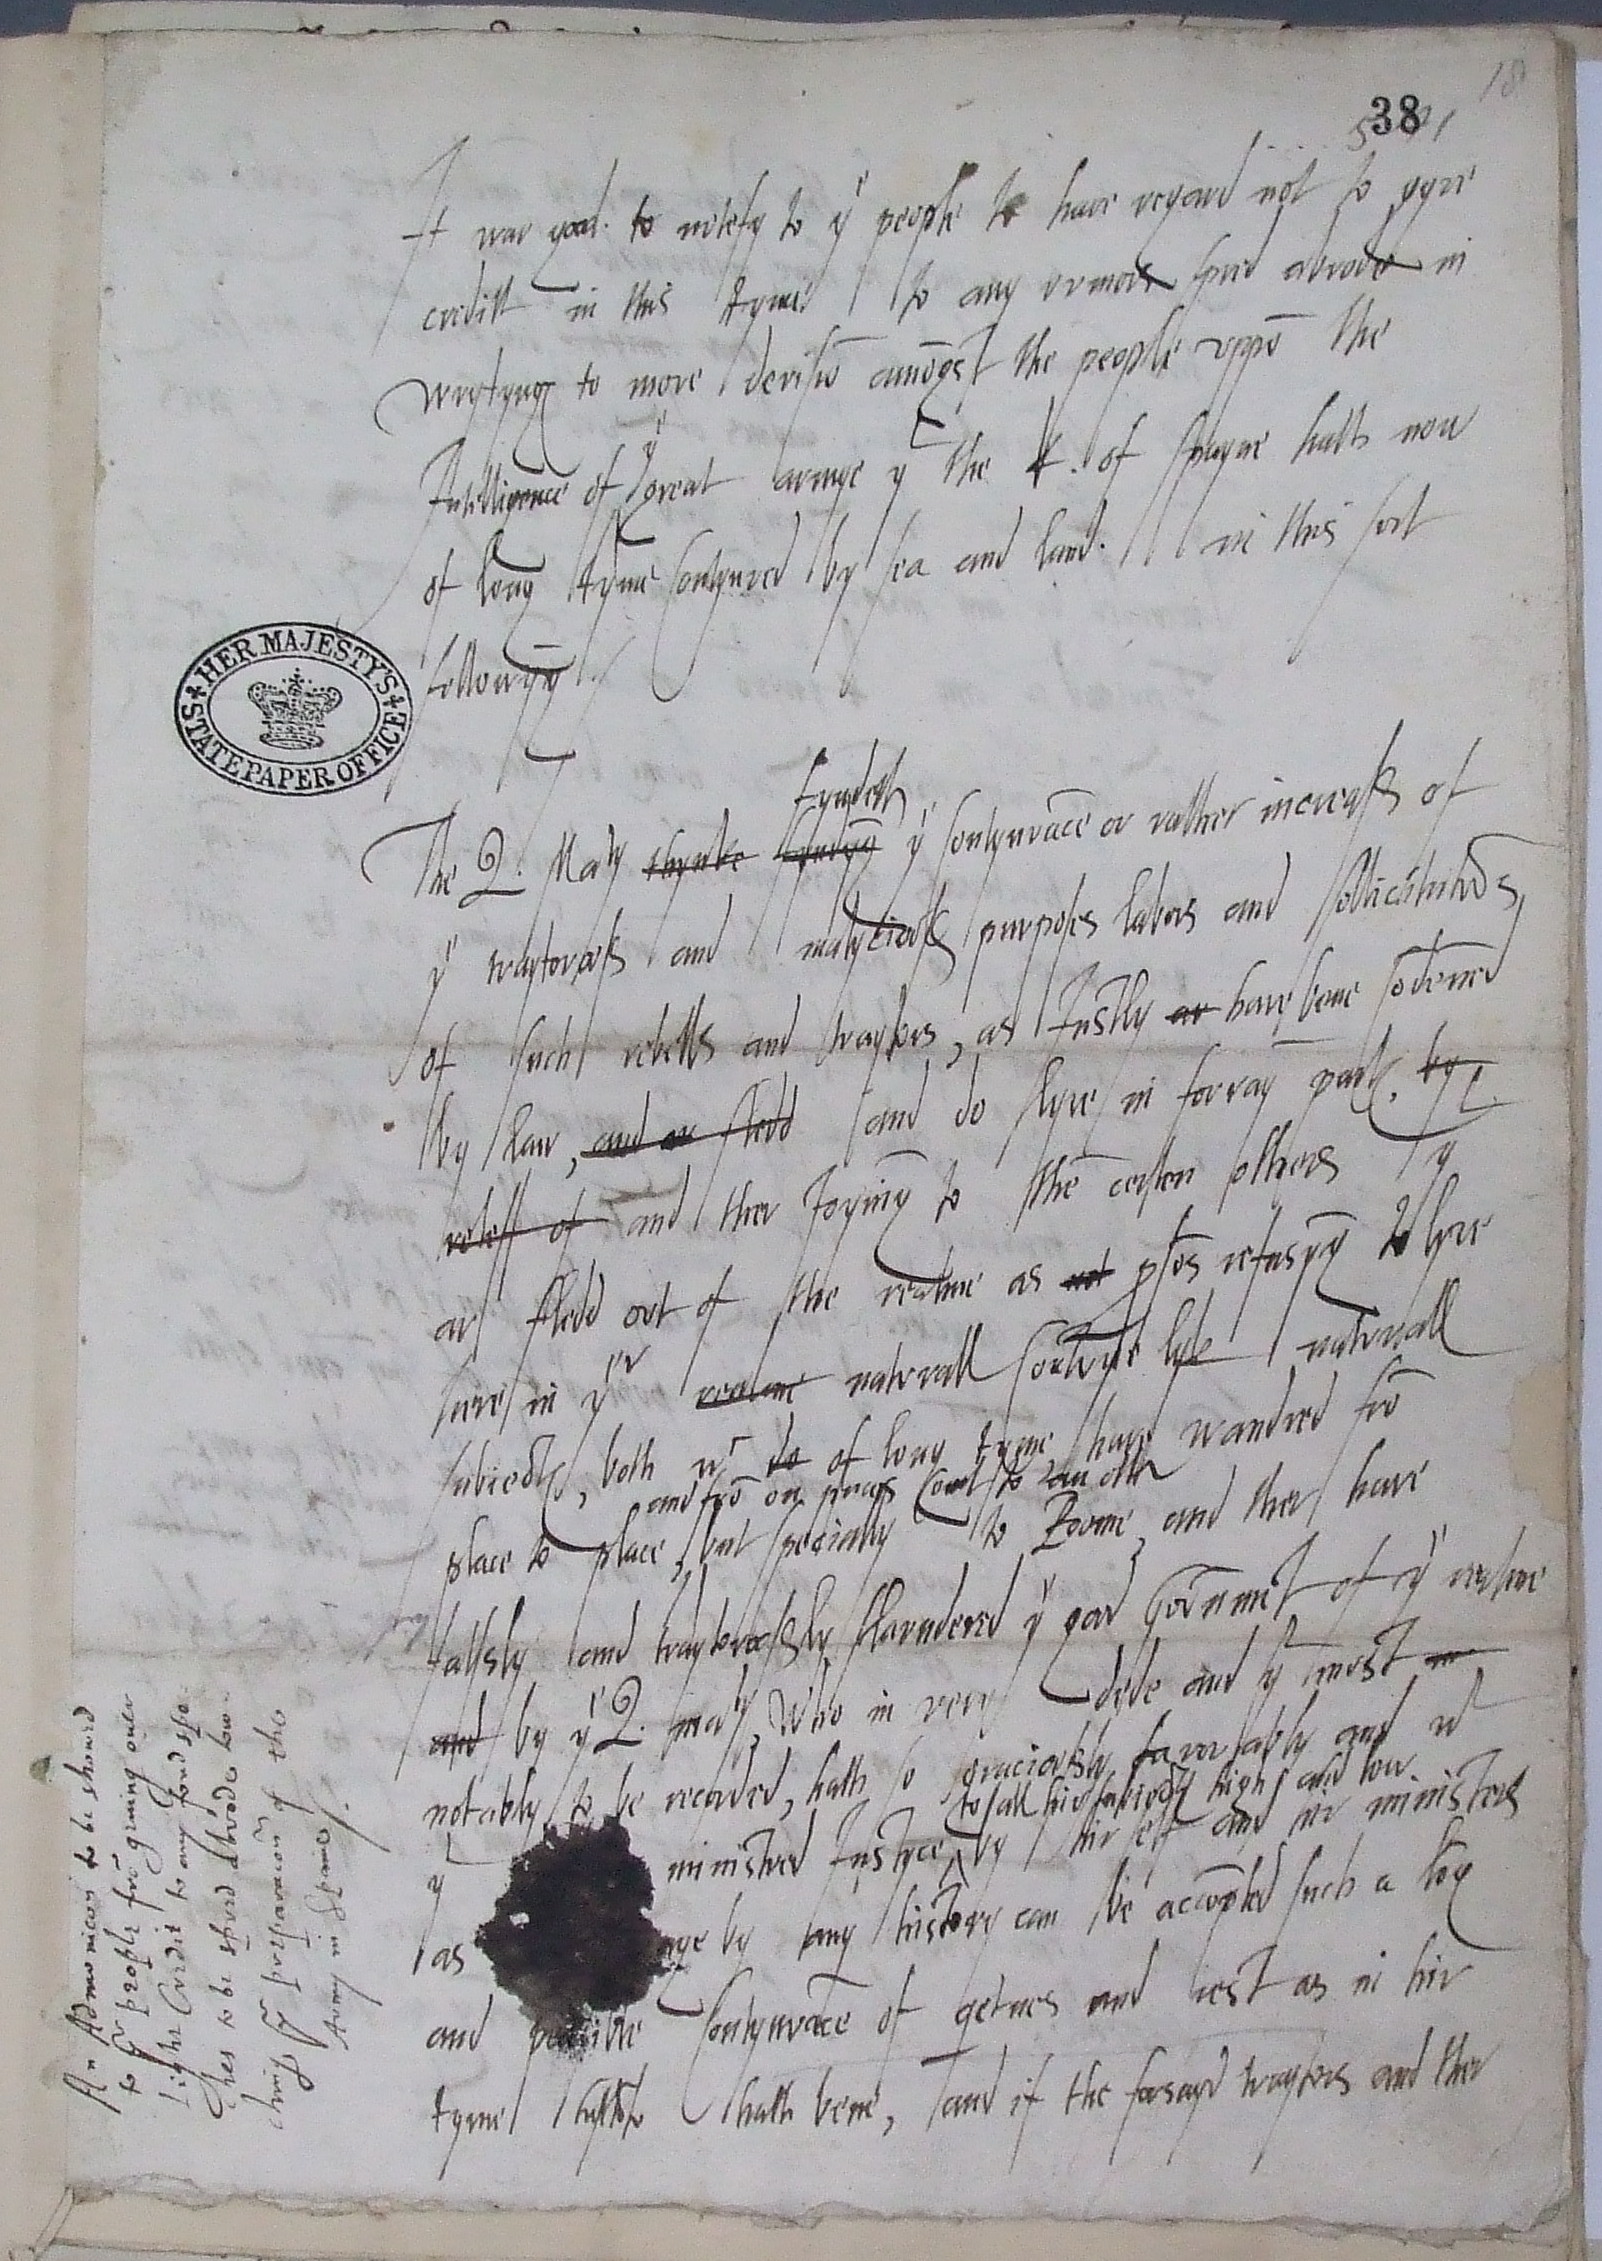 18
38
It war good to notefy to yͤ people to have regard not to gyve
creditt in this tyme to any rumors spred abrode in
wrytyng to move devisiō amōgst the people uppō the
Intelligence of yͤ great armye yͭ the K. of spayne hath now
of long tyme contynued by sea and land. in this sort
followȳg.
HER MAJESTY'S STATE PAPER OFFICE
fyndeth
The Q. Maty thynke fyndyng yͤ contynvāce or rather increass of
yͤ traytorooss and malycioss purposes labors and sollicitutiōs
of such rebells and traytors, as Justly ar have bene cōdēned
by law, and ar fledd and do lyve in forrayn partꝭ, by
releff of and ther Joynīg to thē certen others yͭ
ar fledd out of the realme as not psōs refusȳg to lyve
here in yͤʳ realme naturall contrye lyke naturall
subiectꝭ, both wͨ do of long tyme have wandred frō
and frō on prīces Court to an other
place to place, but specially to Roome, and ther have
falsly and traytoroossly slaundered yͤ good Gouernmēt of yͤ realme
and by yͤ Q. maty, who in very dede and yͭ most
notably to be recorded, hath so graciossly favorably and wͭ
to all hir subiectꝭ high and low
yͭ ministred Justyce by hir self and hir ministers
as by any history can be accōpted such a lōg
and pecible contynvāce of qetnes and rest as in hir
tyme hytherto hath bene, and if the forsayd traytors and ther
An Admonicon to be shewed
to yͤ people frō giving over
light Credit to any fond spe-
ches to be spred abrode tow-
ching yͤ preparacon of the
Army in Spaine.